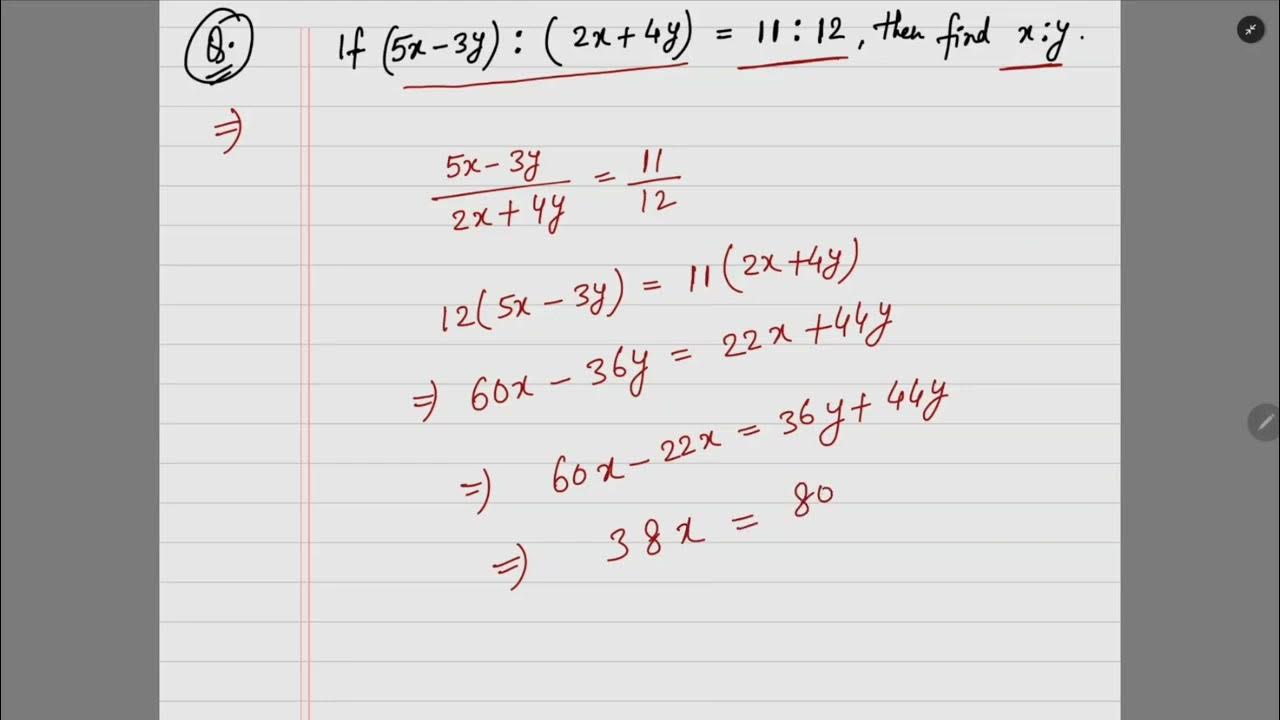 Q. If (5x-3y) : (2x+4y) = 11 : 12, then find x:y.
⇒
5x-3y / 2x+4y = 11 / 12
12(5x-3y) = 11(2x+4y)
⇒ 60x-36y = 22x+44y
⇒ 60x-22x = 36y+44y
⇒ 38x = 80